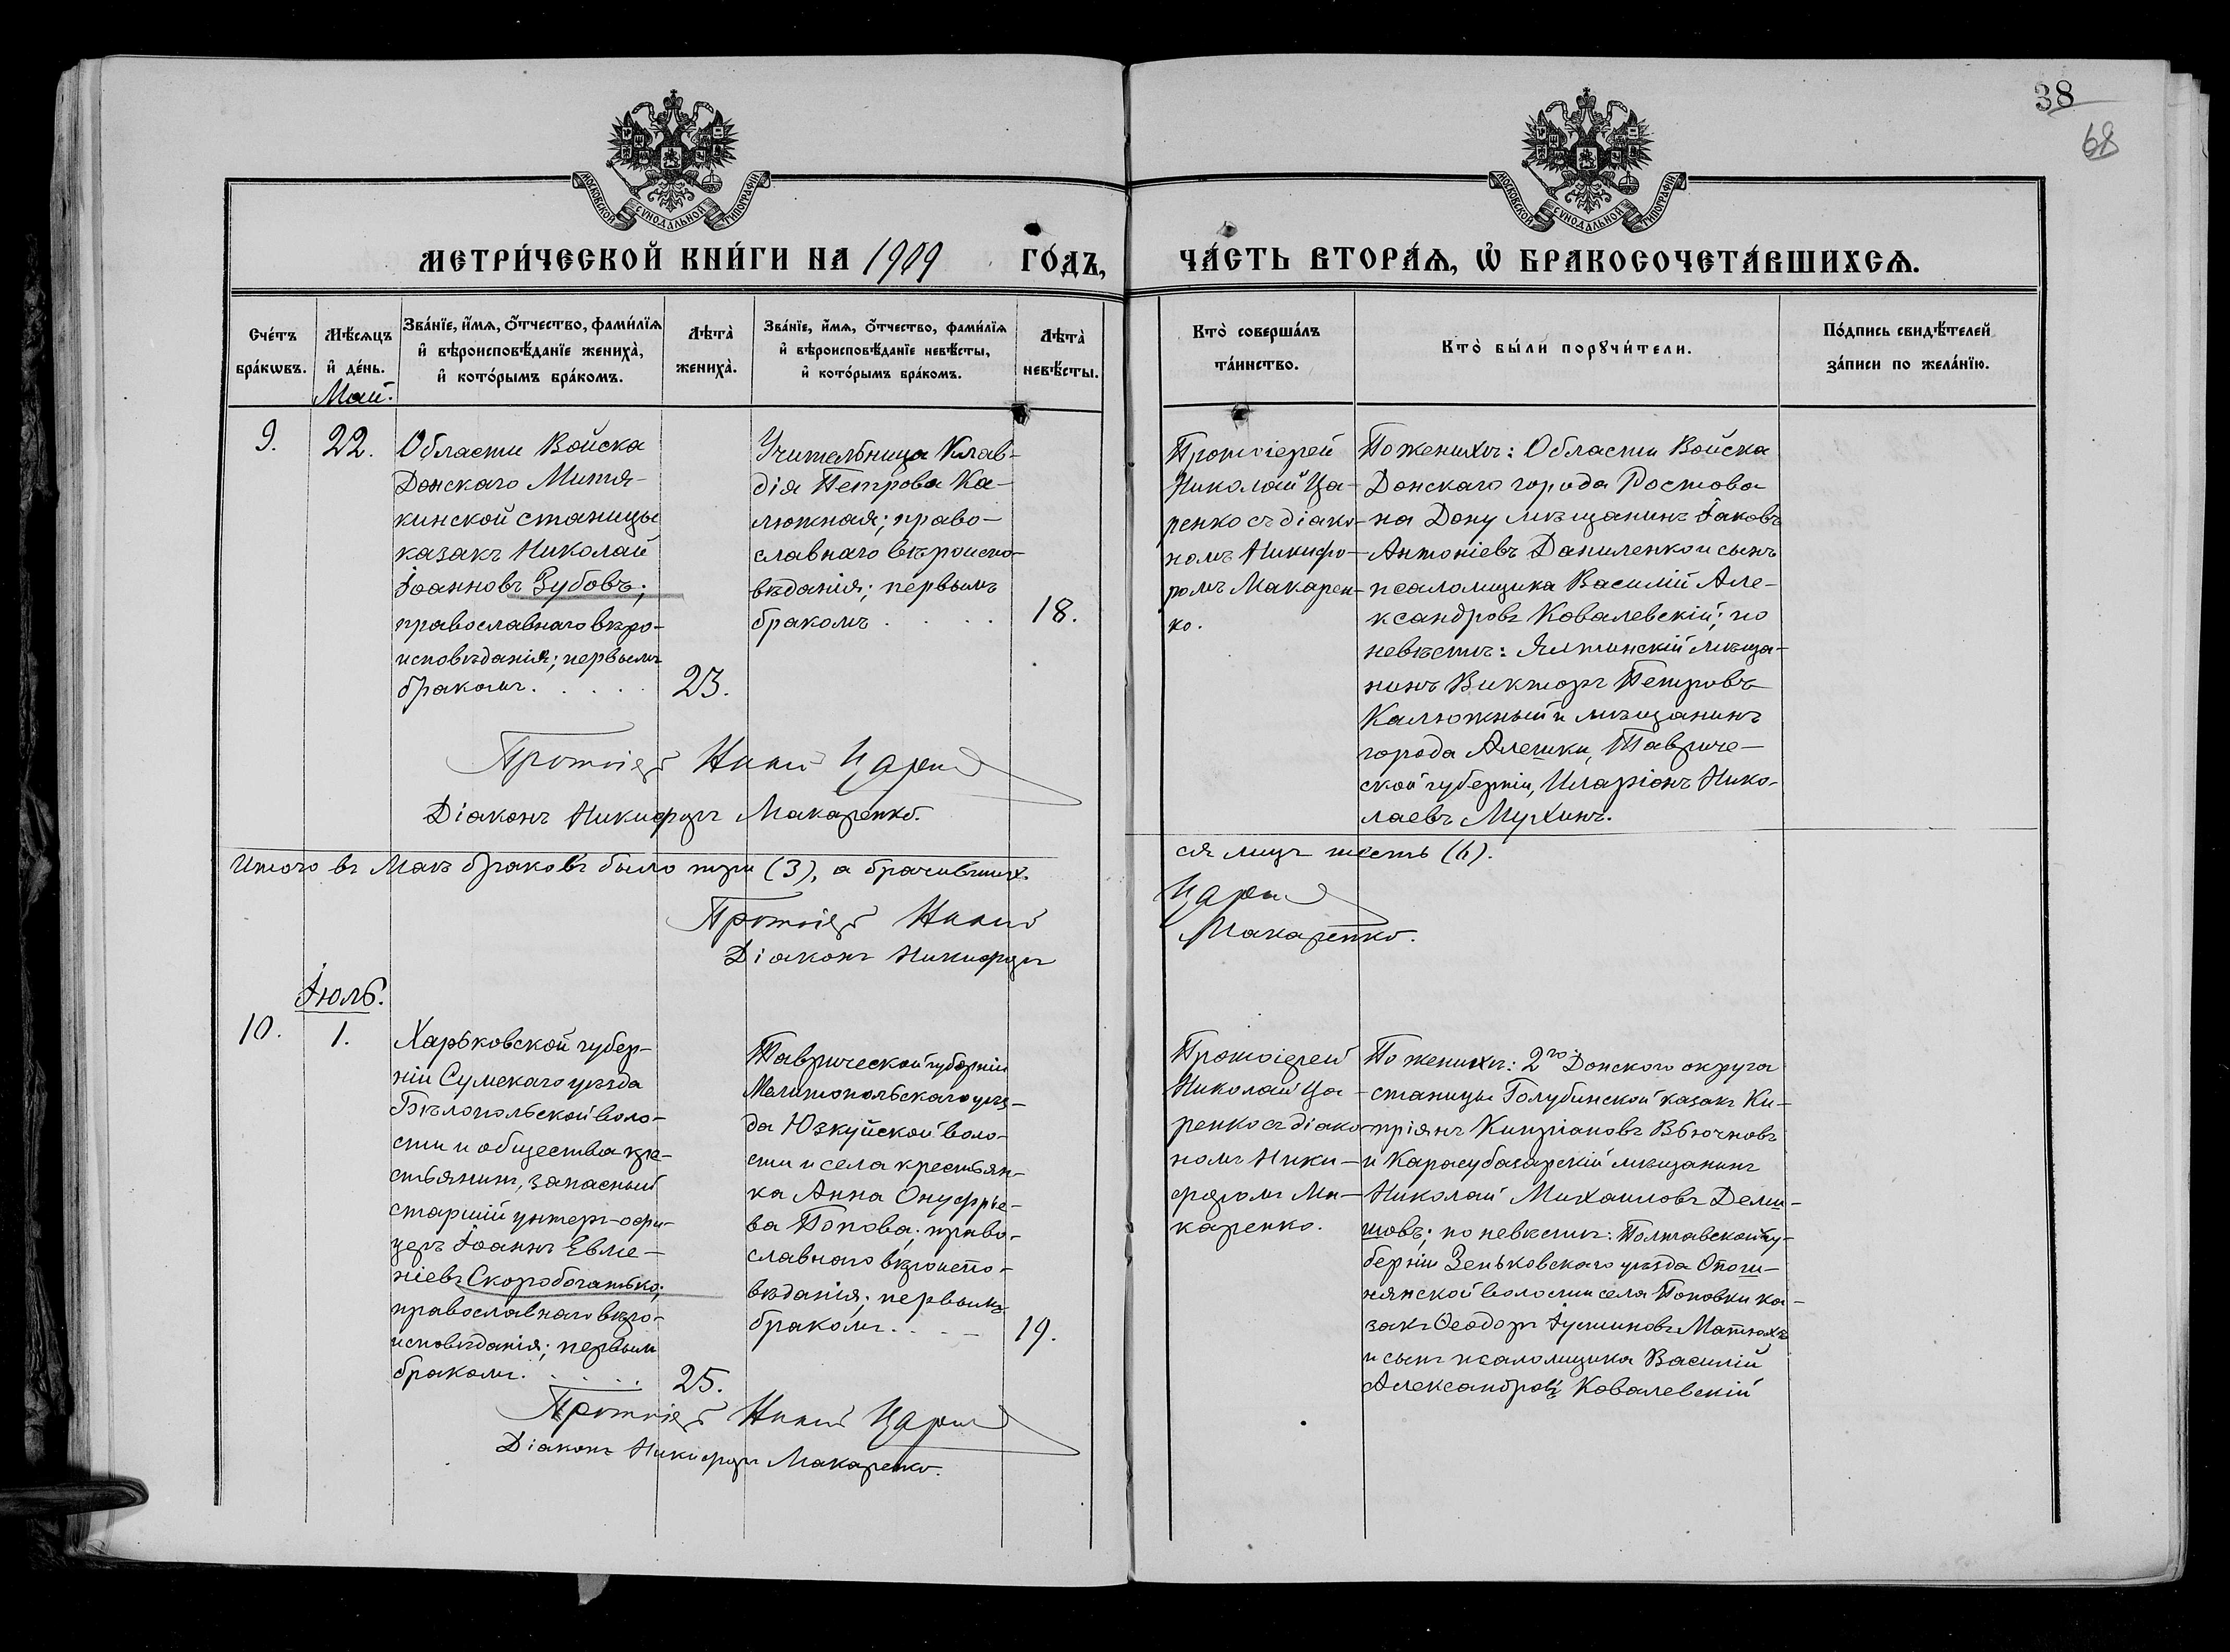 38
68
МОСКОВСКОЙ СѴНОДАЛЬНОЙ ТИПОГРАФІИ
МОСКОВСКОЙ СѴНОДАЛЬНОЙ ТИПОГРАФІИ
МЕТРИ́ЧЕСКОЙ КНИ́ГИ НА 1909 ГО́ДЪ,
ЧА́СТЬ ВТОРА́Ѧ, Ѡ҆ БРАКОСОЧЕТА́ВШИХСѦ.
Сче́тъ
бра́кѡвъ.
Мѣ́сѧцъ
и҆ де́нь.
Зва́нїе, и҆́мѧ, ѻ҆́тчество, фами́лїѧ
и҆ вѣроисповѣ́данїе жениха̀,
и҆ кото́рымъ бра́комъ.
Лѣта̀
жениха̀.
Зва́нїе, и҆́мѧ, ѻ҆́тчество, фами́лїѧ
и҆ вѣроисповѣ́данїе невѣ́сты,
и҆ кото́рымъ бра́комъ.
Лѣта̀
невѣ́сты.
Кто̀ соверша́лъ
та́инство.
Кто̀ бы́ли порꙋчи́тели.
По́дпись свидѣ́телей
за́писи по жела́нїю.
Май.
9.
22.
Области Войска
Донскаго Митя-
кинской станицы
казакъ Николай
Іоанновъ Зубовъ;
православнаго вѣро-
исповѣданія; первымъ
бракомъ. . . . .
23.
Учительница Клав-
дія Петрова Ка-
люжная; право-
славнаго вѣроиспо-
вѣданія; первымъ
бракомъ . . . .
18.
Протоіерей
Николай Ца-
ренко съ діако-
номъ Никифо-
ромъ Макарен-
ко.
По женихѣ: Области Войска
Донскаго города Ростова
на Дону мѣщанинъ Іаковъ
Антоніевъ Даниленко и сынъ
псаломщика Василій Але-
ксандровъ Ковалевскій; по
невѣстѣ: Ялтинскій мѣща-
нинъ Викторъ Петровъ
Калюжный и мѣщанинъ
города Алешки, Тавриче-
ской губерніи, Иларіонъ Нико-
лаевъ Мухинъ.
Протоіер Никол Царен
Діаконъ Никифоръ Макаренко.
Итого въ Маѣ браковъ было три (3), а брачивших-
ся лицъ шесть (6).
Протоіер Никол
Царен
Діаконъ Никифоръ
Макаренко.
Іюль.
10.
1.
Харьковской губер-
ніи Сумскаго уѣзда
Бѣлопольской воло-
сти и общества кре-
стьянинъ, запасный
старшій унтеръ-офи-
церъ Іоаннъ Евме-
ніевъ Скоробогатько;
православнаго вѣро-
исповѣданія; первымъ
бракомъ. . . . .
25.
Таврической губерніи
Мелитопольскаго уѣз-
да Юзкуйской воло-
сти и села крестьян-
ка Анна Онуфріе-
ва Попова; право-
славнаго вѣроиспо-
вѣданія; первымъ
бракомъ. . . .
19.
Протоіерей
Николай Ца-
ренко съ діако-
номъ Ники-
форомъ Ма-
каренко.
По женихѣ: 2го Донского округа
станицы Голубинской казакъ Ки-
пріянъ Кипріановъ Вьючновъ
и Карасубазарскій мѣщанинъ
Николай Михаиловъ Деми-
шовъ; по невѣстѣ: Полтавской гу-
берніи Зеньковскаго уѣзда Опош-
нянской волости села Поповки ка-
закъ Ѳеодоръ Іустиновъ Матюхъ
и сынъ псаломщика Василій
Александровъ Ковалевскій
Протоіер Никол Царен
Діаконъ Никифоръ Макаренко.